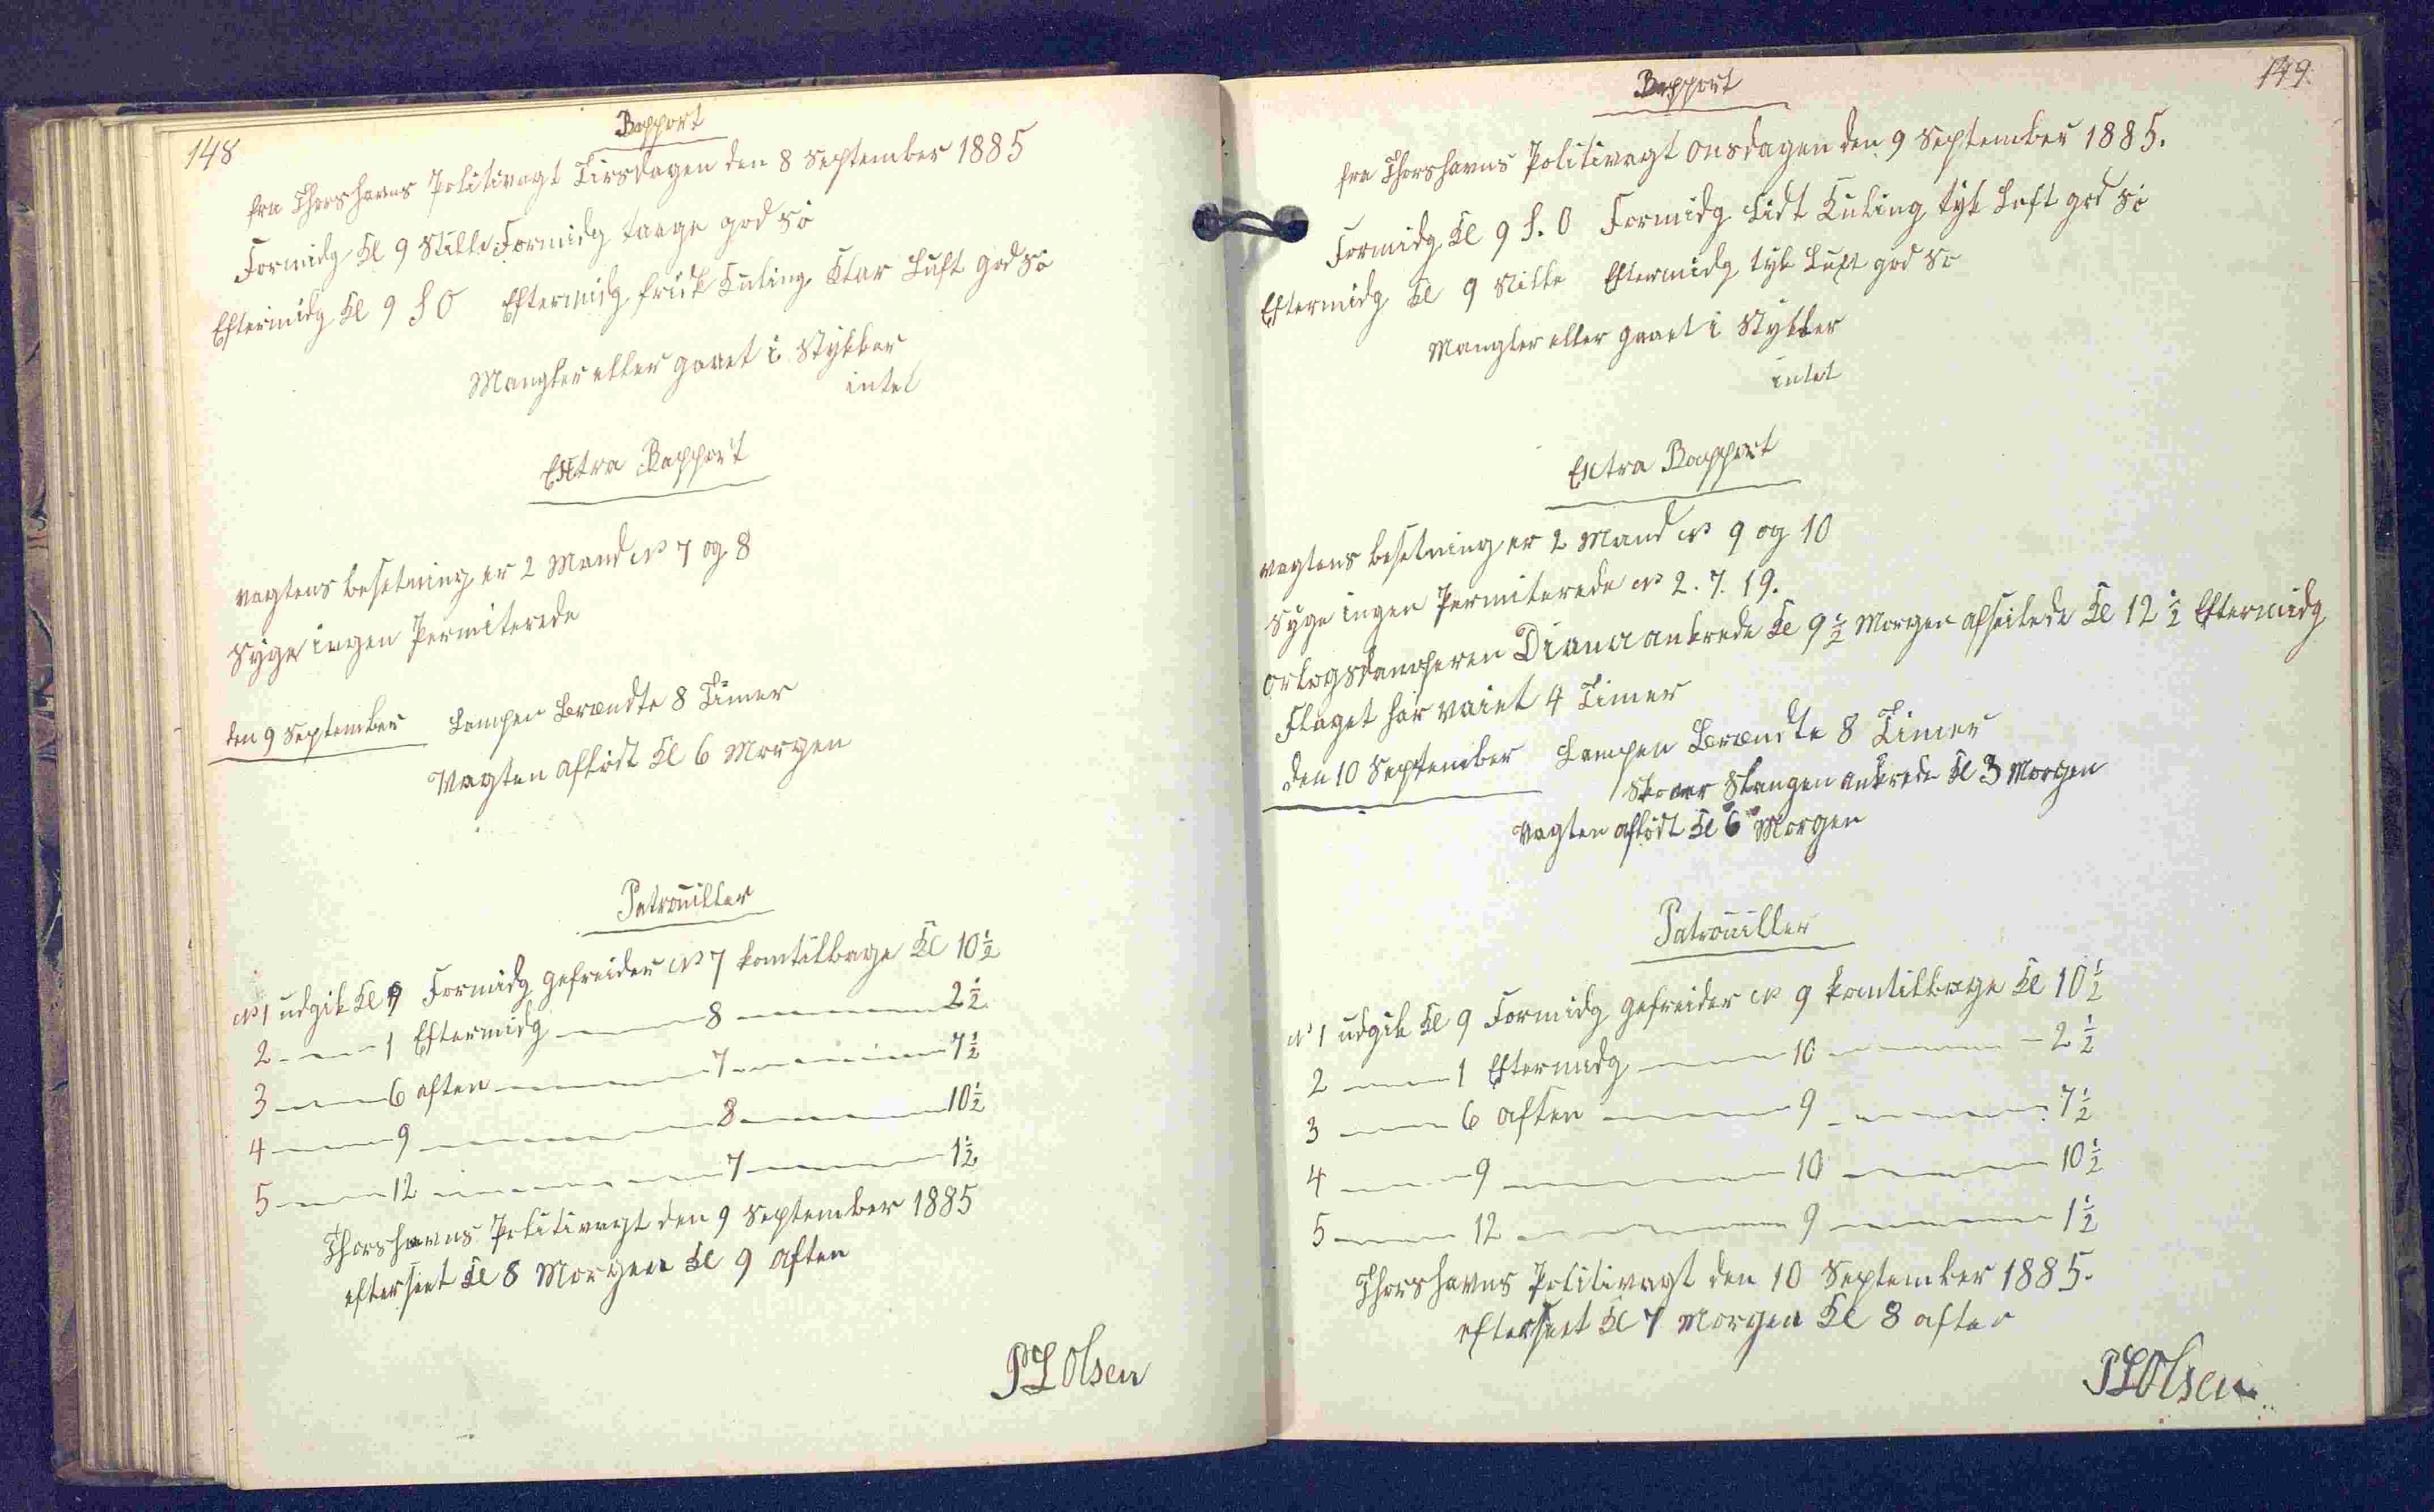 148
Rapport
fra Thorshavns Politivagt Tirsdagen den 8 September 1885
Formidg Kl 9 Stille Formidg taage god Sö
Eftermidg Kl 9 S O Eftermidg frisk Kuling Klar Luft god Sö
Mangler eller gaaet i Stykker
intet
Extra Rapport
vagtens besetning er 2 Mand No 7 og 8
Syge ingen Permiterede
den 9 September Lampen Brændte 8 Timer
Vagten aflödt Kl 6 Morgen
Patrouiller
No 1 udgik Kl 9 Formidg gefreider No 7 kom tilbage Kl 10 1/2
2 — 1 Eftermidg — 8 — 2 1/2
3 — 6 aften — 7 — 7 1/2
4 — 9 — 8 — 10 1/2
5 — 12 — 7 — 1 1/2
Thorshavns Politivagt den 9 September 1885
efterseet Kl 8 Morgen Kl 9 aften
P L Olsen
149
Rapport
fra Thorshavns Politivagt Onsdagen den 9 September 1885.
Formidg Kl 9 S. O Formidg Lidt Kuling tyk Luft god Sö
Eftermidg Kl 9 Stille Eftermidg tyk Luft god Sö
Mangler eller gaaet i Stykker
intet
Extra Rapport
vagtens besetning er 2 Mand No 9 og 10
Syge ingen Permiterede No 2. 7. 19.
Orlogsdamperen Diana ankrede Kl 9 1/2 Morgen afseilede Kl 12 1/2 Eftermidg
Flaget har vaiet 4 Timer
den 10 September Lampen Brændte 8 Timer
ankrede Kl 3 Morgen
Vagten aflödt Kl 6 Morgen
Patrouiller
No 1 udgik Kl 9 Formidg gefreider No 9 kom tilbage Kl 10 1/2
2 — 1 Eftermidg — 10 — 2 1/2
3 — 6 aften — 9 — 7 1/2
4 — 9 — 10 — 10 1/2
5 — 12 — 9 — 1 1/2
Thorshavns Politivagt den 10 September 1885.
efterseet Kl 7 Morgen Kl 8 aften
P L Olsen